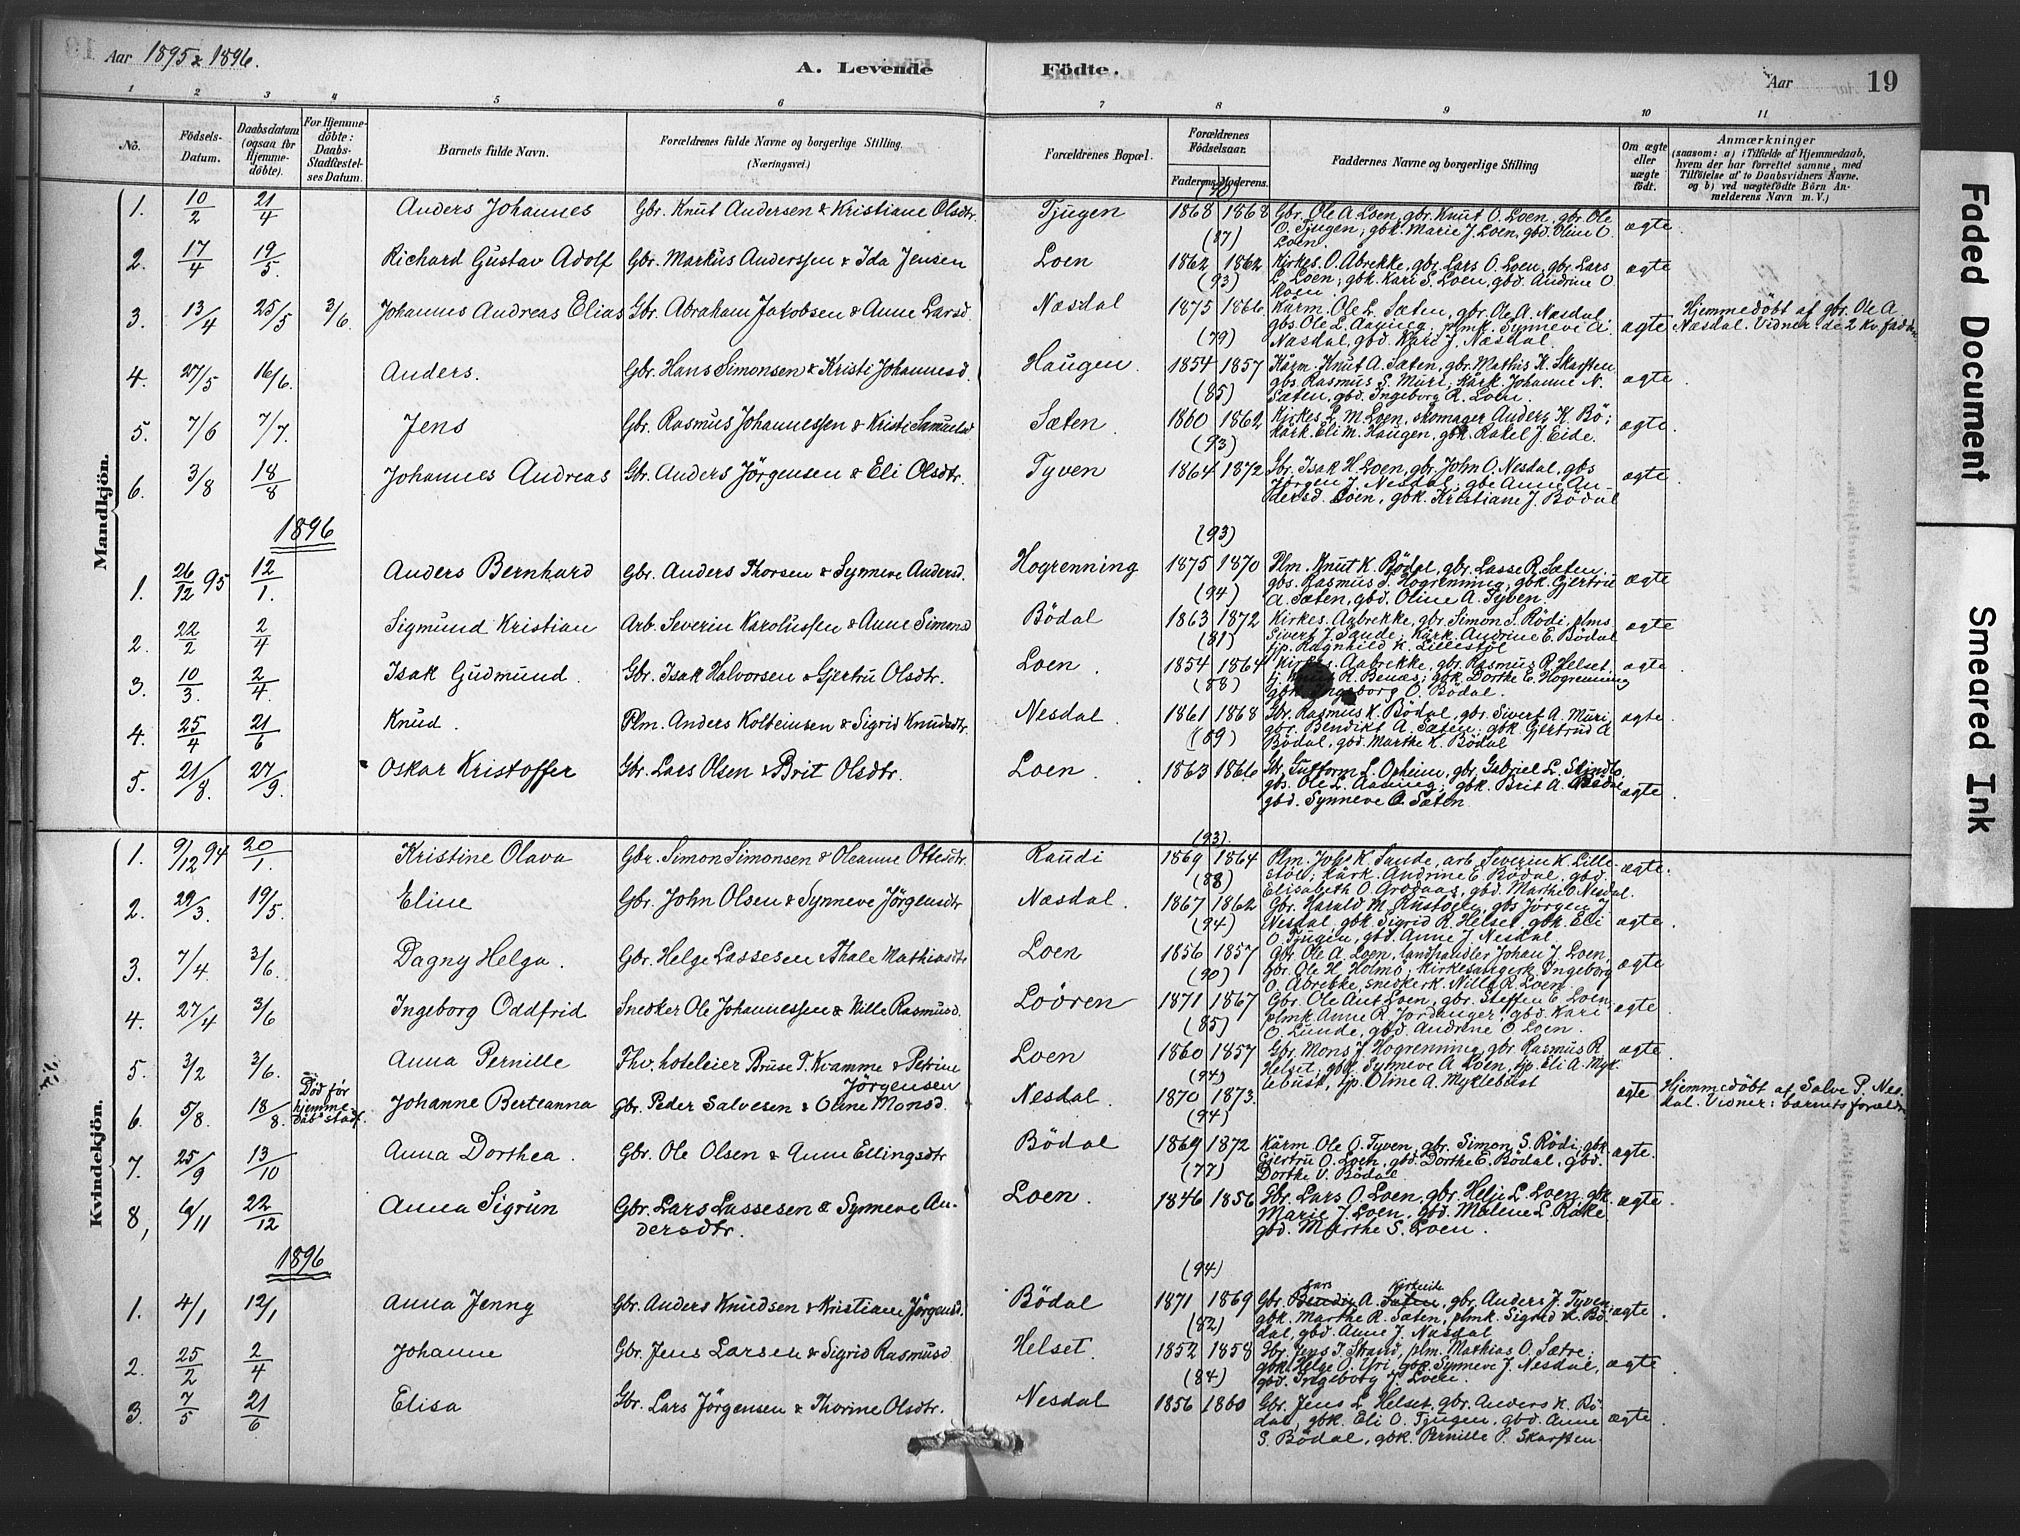 Aar 1895 & 1896.
A. Levende Födte.
Aar
19
1 2 3 4 5 6 7 8 9 10 11
No.
Födsels-Datum.
Daabsdatum (ogsaa for Hjemme-döbte).
For Hjemme-döbte: Daabs-Stadfæstel-ses Datum.
Barnets fulde Navn.
Forældrenes fulde Navne og borgerlige Stilling.
(Næringsvei.)
Forældrenes Bopæl.
Forældrenes Födselsaar.
Faderens. Moderens.
Faddernes Navne og borgerlige Stilling
Om ægte eller uægte födt.
Anmærkninger
(saasom: a) i Tilfælde af Hjemmedaab, hvem der har forrettet samme, med Tilföielse af to Daabsvidners Navne. og b) ved uægtefödte Börn An-melderens Navn m. V.)
Mandkjön.
1. 10/2 21/4 Anders Johannes Gbr. Knut Andersen & Kristiane Olsdtr. Tjugen 1868 1868 (90) Gbr. Ole A. Loen, gbr. Knut O. Loen, gbr. Ole
O. Tjugen; gbk. Marie J. Loen, gbd. Oline O.
Loen. ægte.
2. 17/4 19/5 Richard Gustav Adolf Gbr. Markus Anderssen & Ida Jensen Loen 1862 1862 (87) Kirkes. O. Abrekke, gbr. Lars O. Loen, gbr. Lars
L. Loen; gbk. Kari S. Loen, gbd. Andrine O
Loen. ægte
3. 13/4 25/5 3/6. Johannes Andreas Elias Gbr. Abraham Jakobsen & Anne Larsd. Næsdal 1875 1866 (93) Kårm. Ole L. Sæten, gbr. Ole A. Næsdal,
gbs. Ole L. Aaning; plmk. Synneve A.
Næsdal, gbd. Kari J. Næsdal. ægte Hjemmedöbt af gbr. Ole A.
Næsdal. Vidner: de 2 kv. faddere
4. 27/5 16/6. Anders. Gbr. Hans Simonsen & Kristi Johannesd. Haugen 1854 1857 (79) Kårm. Knut A. Sæten, gbr. Mathis K. Skarsten
gbs. Rasmus S. Muri; kårk. Johanne N.
Sæten, gbd. Ingeborg R. Loen. ægte.
5. 7/6 7/7. Jens Gbr. Rasmus Johannessen & Kristi Samuelsd Sæten 1860 1862 (85) Kirkes. L. M. Loen, skomager Anders K. Bö;
kårk. Eli M. Haugen, gbk. Rakel J. Eide. ægte.
6. 3/8 18/8 Johannes Andreas Gbr. Anders Jörgensen & Eli Olsdtr. Tyven 1864 1872 (93) Gbr. Isak H. Loen, gbr. John O. Nesdal, gbs
Jörgen J. Nesdal; gbe Anne An-
dersd. Loen, gbk. Kristiane J. Bödal ægte.
1896
1. 26/12 95 12/1. Anders Bernhard Gbr. Anders Thorsen & Synneve Andersd. Hogrenning 1875 1870 (93) Plm. Knut K. Bödal, gbr. Lasse R. Sæten.
gbs. Rasmus S. Hogrenning; gbk. Gjertru
A. Sæten, gbd. Oline A. Tyven. ægte
2. 22/2 2/4 Sigmund Kristian Arb. Severin Karolussen & Anne Simonsd Bödal 1863 1872 (94) Kirkes. Aabrekke, gbr. Simon S. Rödi, plms
Sivert J. Sande; kårk. Andrine E. Bödal
tjp. Ragnhild K. Lillestöl ægte
3. 10/3. 2/4. Isak Gudmund. Gbr. Isak Halvorsen & Gjertru Olsdtr. Loen. 1854 1864 (81) Kirkes. Aabrekke, gbr. Rasmus R. Helset,
R. Benæs; gbk. Dorthe E. Hogrenning
gbk. Ingeborg O. Bödal. ægte
4. 25/4 21/6 Knud. Plm. Anders Kolbeinsen & Sigrid Knudsdtr Nesdal. 1861 1868 (88) Gbr. Rasmus K. Bödal, gbr. Sivert A. Muri,
gbr. Bendikt A. Sæten; gbk. Gjertrud A
Bödal, gbd. Marthe K. Bödal ægte.
5. 21/8. 27/9. Oskar Kristoffer Gbr. Lars Olsen & Brit Olsdtr. Loen. 1863 1866 (89) Gbr. Guttorm L. Opheim, gbr. Gabriel L.
gbs. Ole L. Aaning; gbk. Brit A.
gbd. Synneve O. Sæten. ægte.
Kvindekjön.
1. 9/12 94 20/1. Kristine Olava Gbr. Simon Simonsen & Oleanne Ottesdtr. Raudi 1869 1864 (93) Plm. Johs K. Sande, arb. Severin K. Lille-
stöl; kårk. Andrine E. Bödal, gbd.
Elisabeth O. Grodaas, gbd. Marthe O. Nesdal. ægte.
2. 29/3. 19/5. Eline Gbr. John Olsen & Synneve Jörgensdtr Næsdal. 1867 1862 (88) Gbr. Harald M. Rustöen, gbs Jörgen J.
Nesdal, gbk. Sigrid R. Helset, gbk. Eli
O. Tjugen, gbd. Anne J. Nesdal. ægte.
3. 7/4 3/6. Dagny Helga. Gbr. Helge Lassesen & Thale Mathiasdtr Loen 1856 1857 (94) Gbr. Ole A. Loen, landhandler Johan J. Loen,
Gbr. Ole H. Holmö; kirkesangerk. Ingeborg
O. Abrekke, snedkerk. Nille R. Loen. ægte
4. 27/4 3/6 Ingeborg Oddfrid Snedker Ole Johannessen & Nille Rasmusd. Loören 1871 1867 (90) Gbr. Ole Ant. Loen, gbr. Steffen E. Loen;
plmk. Anne R. Jordanger, gbd. Kari
O. Lunde, gbd. Andrine O. Loen. ægte.
5. 3/2 3/6. Anna Pernille Fhv. hoteleier Bruse T. Kvamme & Petrine
Jörgensen Loen 1860 1857 (85) Gbr. Mons J. Hogrenning, gbr. Rasmus R
Helset; gbk. Synneve A. Loen, tjp. Eli A. Myk-
lebust, tjp. Oline A. Myklebust ægte.
6. 5/8. 18/8. Död för
hjemme-
dåb stadf. Johanne Berteanna Gbr. Peder Salvesen & Oline Monsd. Nesdal. 1870 1873. (94) ægte Hjemmedöbt af Salve P. Nes-
dal. Vidner: barnets foreldre
7. 25/9 13/10 Anna Dorthea. Gbr. Ole Olsen & Anne Ellingsdtr Bödal 1869 1872 (94) Kårm. Ole O. Tyven, gbr. Simon S. Rödi, gbk.
Gjertru O. Loen, gbd. Dorthe E. Bödal, gbd.
Dorthe V. Bödal. ægte.
8, 6/11 22/12 Anna Sigrun Gbr. Lars Lassesen & Synneve An-
dersdtr. Loen. 1846 1856 (77) Gbr. Lars O. Loen, gbr. Helje L. Loen, gbk.
Marie J. Loen, gbd. Malene L. Rake
gbd. Marthe S. Loen. ægte.
1896
1. 4/1 12/1 Anna Jenny Gbr. Anders Knudsen & Kristiane Jörgensd. Bödal 1871 1869 (94) Gbr. Lars A. gbr. Anders J. Tyven;
gbk. Marthe R. Sæten, plmk. Sigrid K. Bö-
dal, gbd. Anne J. Næsdal ægte.
2. 25/2 2/4 Johanne Gbr. Jens Larsen & Sigrid Rasmusd Helset. 1852 1858 (82) Gbr. Jens J. Strand, plm. Mathias O. Sætre;
gbk. Helge O. Uri, gbk. Synneve J. Nesdal,
gbd. Ingeborg J. Loen. ægte.
3. 7/5 21/6 Elisa Gbr. Lars Jörgensen & Thorine Olsdtr. Nesdal 1856 1860 (84) Gbr. Jens L. Helset, gbr. Anders K. Bö-
dal, gbk. Eli O. Tjugen, gbd. Anne
S. Bödal, gbk. Pernille P. Skarsten. ægte.
Faded Document
Smeared Ink